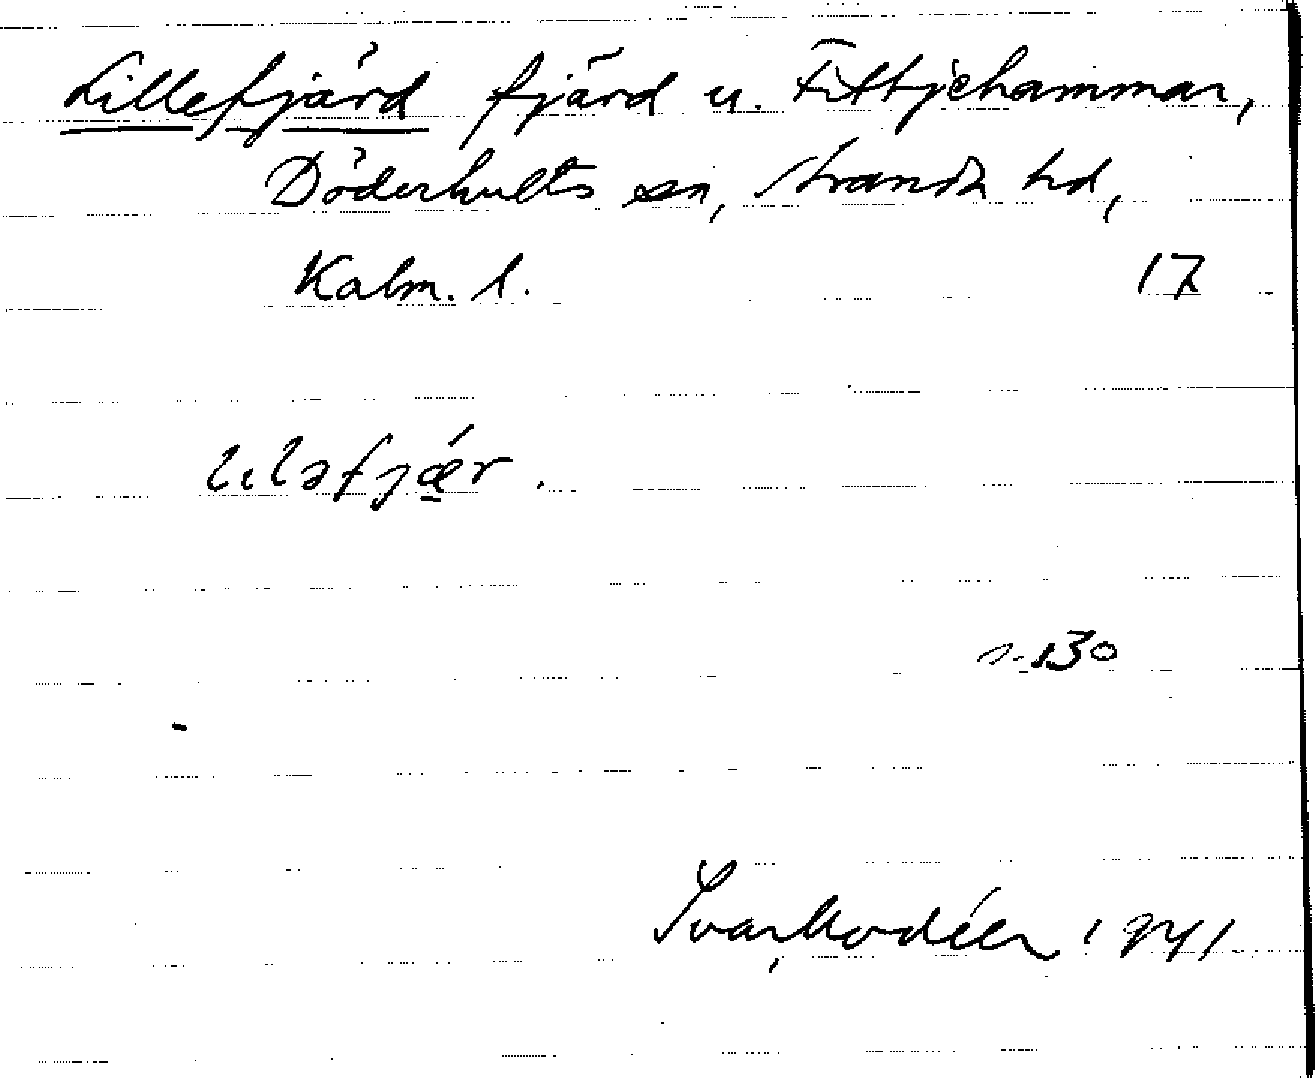 Lillefjärd fjärd u. Fittjehammar,
Döderhults sn, Stranda hd,
Kalm. l. 17
lıləfjær.
s. 130
Ivar Modéer 1941